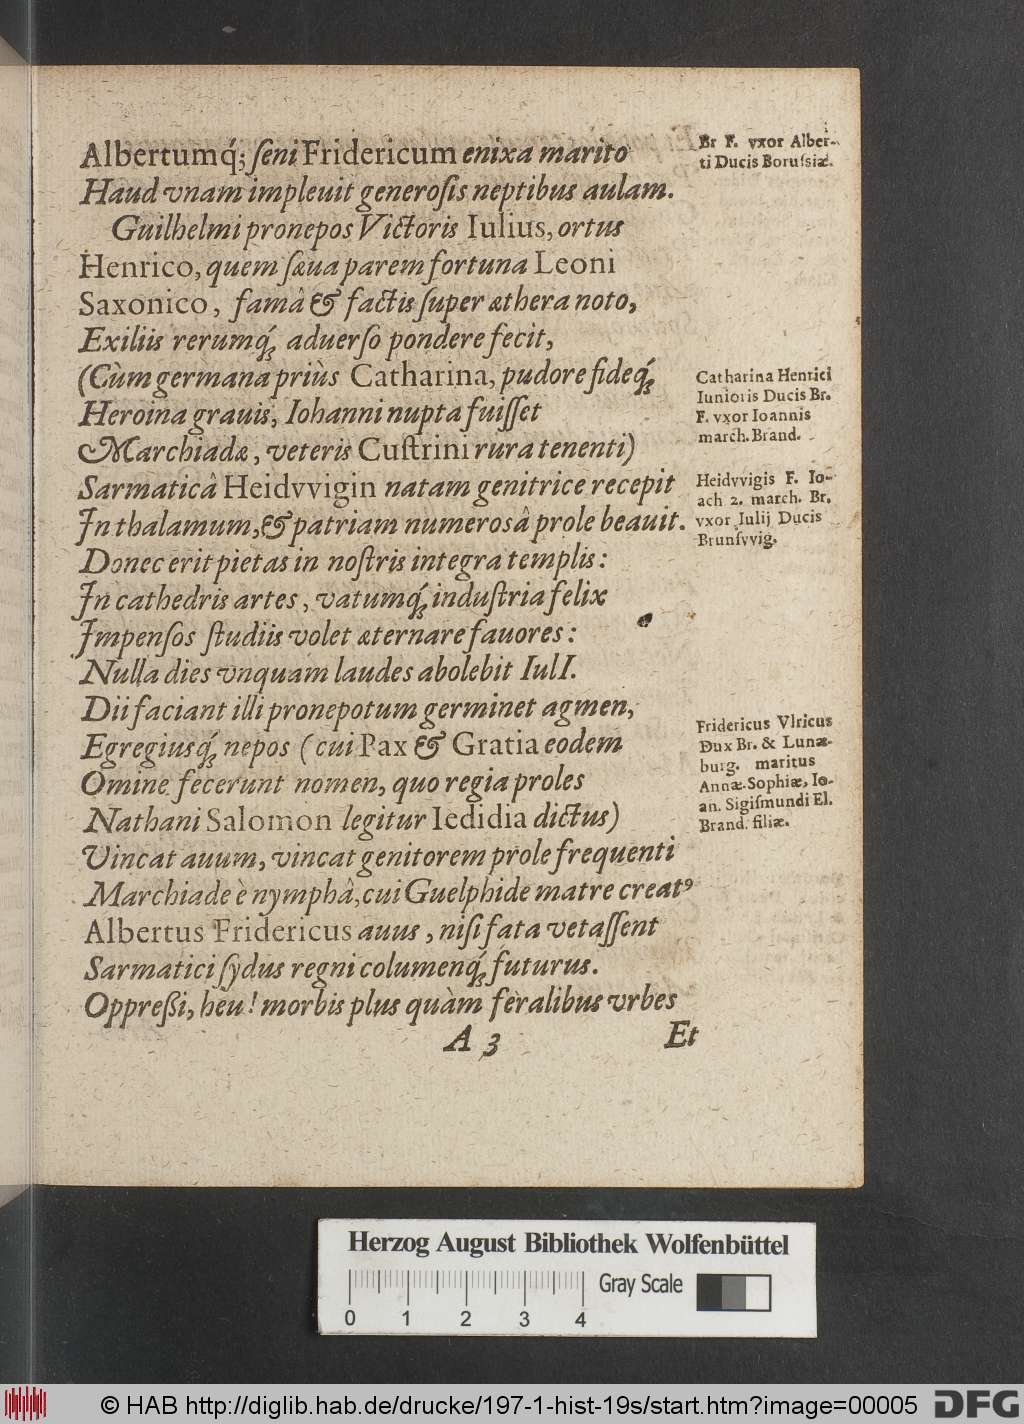 Albertumq́; ſeni Fridericum enixa marito
Haud vnam impleuit generoſis neptibus aulam.
Guilhelmi pronepos Victoris Iulius, ortus
Henrico, quem ſæua parem fortuna Leoni
Saxonico, famâ & factis ſuper æthera noto,
Exiliis rerumq́; aduerſo pondere fecit,
(Cùm germana priùs Catharina, pudore fideq́;
Heroina grauis, Iohanni nupta fuiſſet
Marchiadæ, veteris Cuſtrini rura tenenti)
Sarmaticâ Heidvvigin natam genitrice recepit
In thalamum, & patriam numerosâ prole beauit.
Donec erit pietas in noſtris integra templis:
In cathedris artes, vatumq́; induſtria felix
Impenſos ſtudiis volet æternare fauores:
Nulla dies vnquam laudes abolebit IulI.
Dii faciant illi pronepotum germinet agmen,
Egregiusq́; nepos (cui Pax & Gratia eodem
Omine fecerunt nomen, quo regia proles
Nathani Salomon legitur Iedidia dictus)
Vincat auum, vincat genitorem prole frequenti
Marchiade è nymphâ, cui Guelphide matre creatꝰ
Albertus Fridericus auus, niſi fata vetaſſent
Sarmatici ſydus regni columenq́; futurus.
Oppreßi, heu! morbis plus quàm feralibus vrbes
A 3
Et
Br F. vxor Alber-
ti Ducis Boruſsiæ.
Catharina Henrici
Iunioris Ducis Br.
F. vxor Ioannis
march. Brand.
Heidvvigis F. Io-
ach 2. march. Br.
vxor Iulij Ducis
Brunſvvig.
Fridericus Vlricus
Dux Br. & Lunæ-
burg. maritus
Annæ Sophiæ, Io-
an. Sigiſmundi El.
Brand. filiæ.
Herzog August Bibliothek Wolfenbüttel
Gray Scale
0 1 2 3 4
© HAB http://diglib.hab.de/drucke/197-1-hist-19s/start.htm?image=00005
DFG